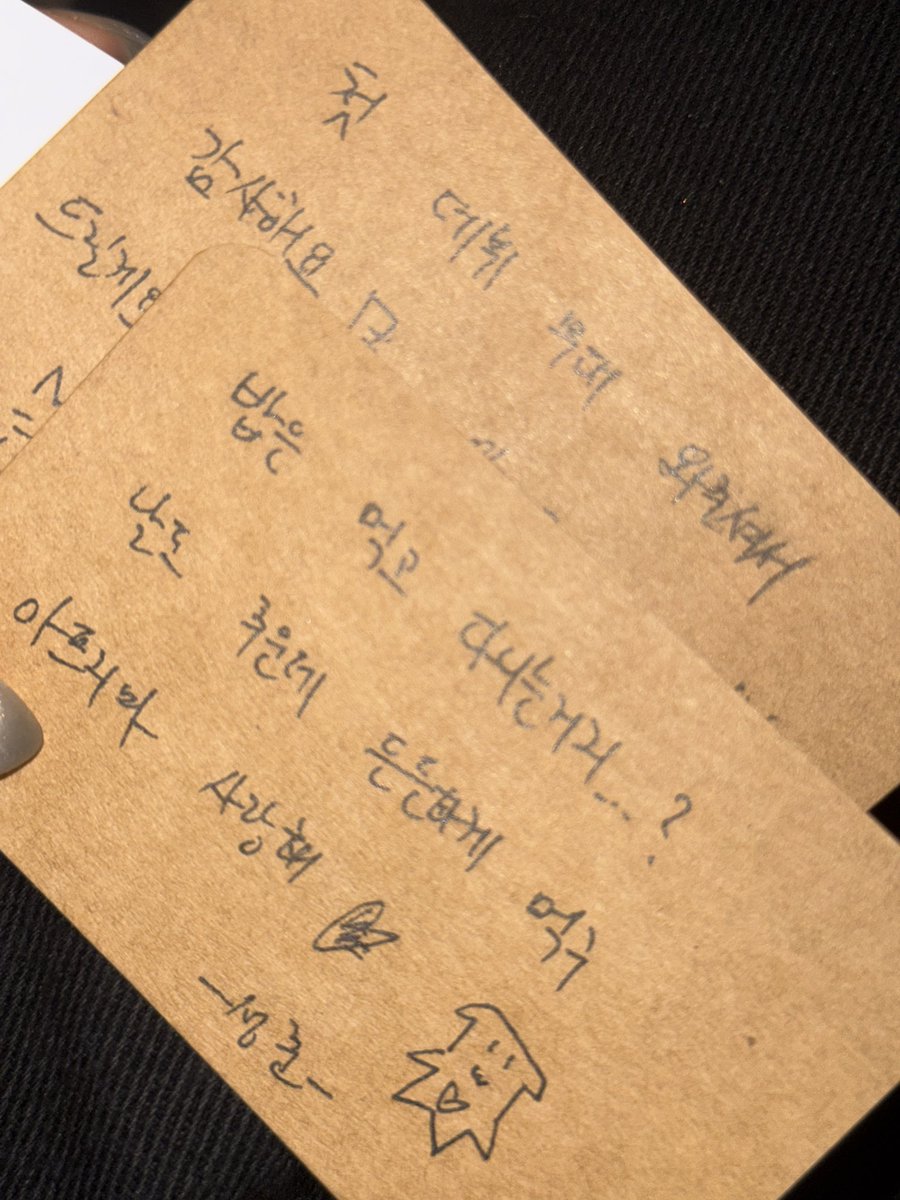 첫 데뷔 무대 와주셔서
감사해요
드릴게요
밥은 먹고 다니는거지...?
날도 추운데 든든하게 먹구
아프지마 사랑해